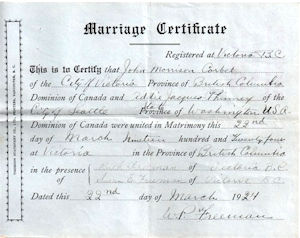 Marriage Certificate
Registered at Victoria B.C.
This is to Certify that John Morrison Corbet
of the City of Victoria Province of British Columbia
Dominion of Canada and Jaques Thimey
of the City of Seattle State Province of Washington U.S.A.
Dominion of Canada were united in Matrimony this 22nd
day of March Nineteen hundred and Twenty four
at Victoria in the Province of British Columbia
in the presence of Freeman of Victoria B.C.
Freeman of Victoria B.C.
Dated this 22nd day of March 1924
Freeman